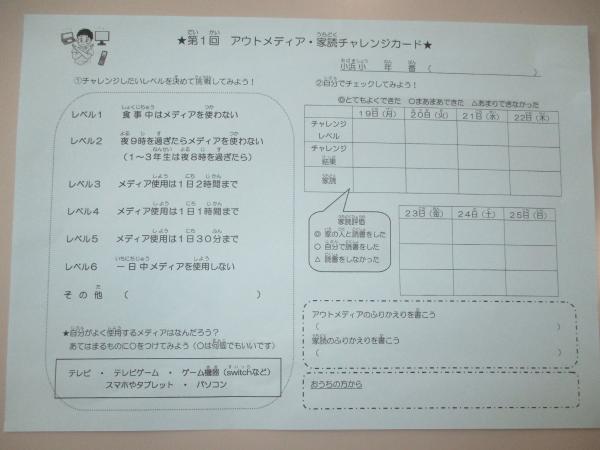 ★第1回 アウトメディア・家読チャレンジカード★
小浜小 年 番 (　　　)
①チャレンジしたいレベルを決めて挑戦してみよう！
レベル1 食事中はメディアを使わない
レベル2 夜9時を過ぎたらメディアを使わない
(1～3年生は夜8時を過ぎたら)
レベル3 メディア使用は1日2時間まで
レベル4 メディア使用は1日1時間まで
レベル5 メディア使用は1日30分まで
レベル6 一日中メディアを使用しない
その他 (　　　)
★自分がよく使用するメディアはなんだろう？
あてはまるものに○をつけてみよう（○は何個でもいいです）
テレビ ・ テレビゲーム ・ ゲーム機器（switchなど）
スマホやタブレット ・ パソコン
②自分でチェックしてみよう！
◎とてもよくできた ○まあまあできた △あまりできなかった
19日（月） 20日（火） 21日（水） 22日（木）
チャレンジ
レベル
チャレンジ
結果
家読
家読評価
◎ 家の人と読書をした
○ 自分で読書をした
△ 読書をしなかった
23日（金） 24日（土） 25日（日）
アウトメディアのふりかえりを書こう
(　　　)
家読のふりかえりを書こう
(　　　)
おうちの方から